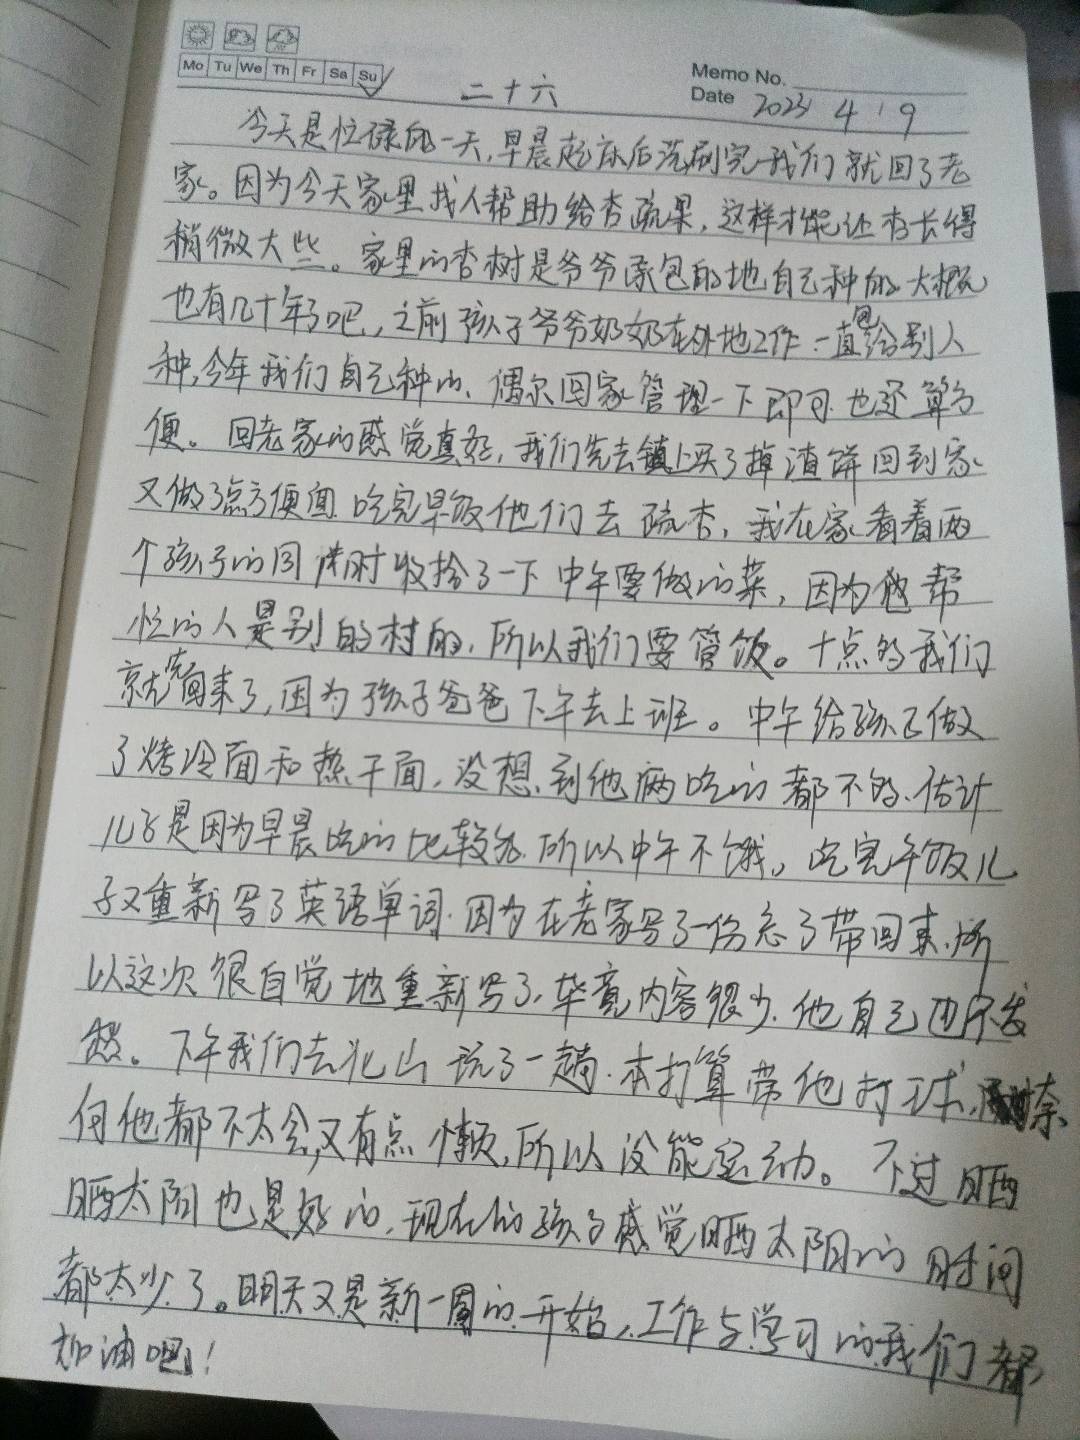 Mo Tu We Th Fr Sa Su
Memo No.
Date 2023 4 9
二十六
今天是忙碌的一天,早晨起床后洗刷完我们就回了老
家。因为今天家里找人帮助给杏疏果,这样才能让杏长得
稍微大些。家里的杏树是爷爷承包的地自己种的大概
也有几十年了吧,之前孩子爷爷奶奶在外地工作一直包给别人
种,今年我们自己种的、偶尔回家管理一下即可.也还算方
便。回老家的感觉真好,我们先去镇上买了掉渣饼回到家
又做了点方便面.吃完早饭他们去疏杏,我在家看着两
个孩子的同时收拾了一下中午要做的菜,因为帮
忙的人是别的村的,所以我们要管饭。十点多我们
就先回来了,因为孩子爸爸下午去上班。中午给孩子做
了烤冷面和热干面,没想到他俩吃的都不多、估计
儿子是因为早晨吃的比较多.所以中午不饿。吃完午饭儿
子又重新写了英语单词.因为在老家写了一份忘了带回来.所
以这次很自觉地重新写了,毕竟内容很少.他自己也不发
愁。下午我们去北山玩了一趟.本打算带他打球,奈
何他都不太会,又有点懒,所以没能运动。不过晒
晒太阳也是好的,现在的孩子感觉晒太阳的时间
都太少了。明天又是新一周的开始,工作与学习的我们都
加油吧!